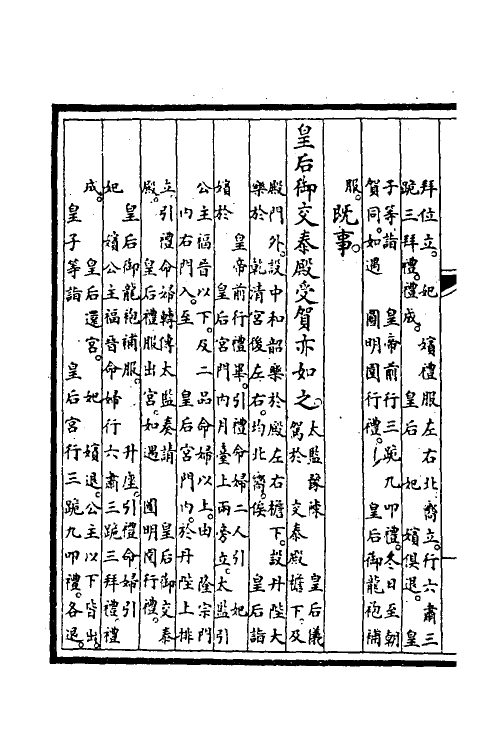 拜位立。妃　嬪禮服左右北嚮立。行六肅三
跪三拜禮。禮成。　皇后　妃　嬪俱退。　皇
子等詣　皇帝前行三跪九叩禮。冬日至朝
賀同。如遇　圓明園行禮。　皇后御龍袍補
服。
既事。
皇后御交泰殿受賀亦如之。
太監豫陳　皇后儀
駕於　交泰殿檐下。及
殿門外。設中和韶樂於殿左右檐下。設丹陛大
樂於　乾清宮後左右。均北嚮。俟　皇后詣
　皇帝前行禮畢。引禮命婦二人引　妃
嬪於　皇后宮門內月臺上兩旁立。太監引
公主福晉以下。及二品命婦以上。由　隆宗門
內右門入。至　皇后宮門內。於丹陛上排
立。引禮命婦轉傳太監奏請　皇后御交泰
殿。　皇后禮服出宮。如遇　圓明園行禮。
　皇后御龍袍補服。　升座。引禮命婦引
妃　嬪公主福晉命婦行六肅三跪三拜禮。禮
成。　皇后還宮。　妃　嬪退。公主以下皆出。
　皇子等詣　皇后宮行三跪九叩禮。各退。